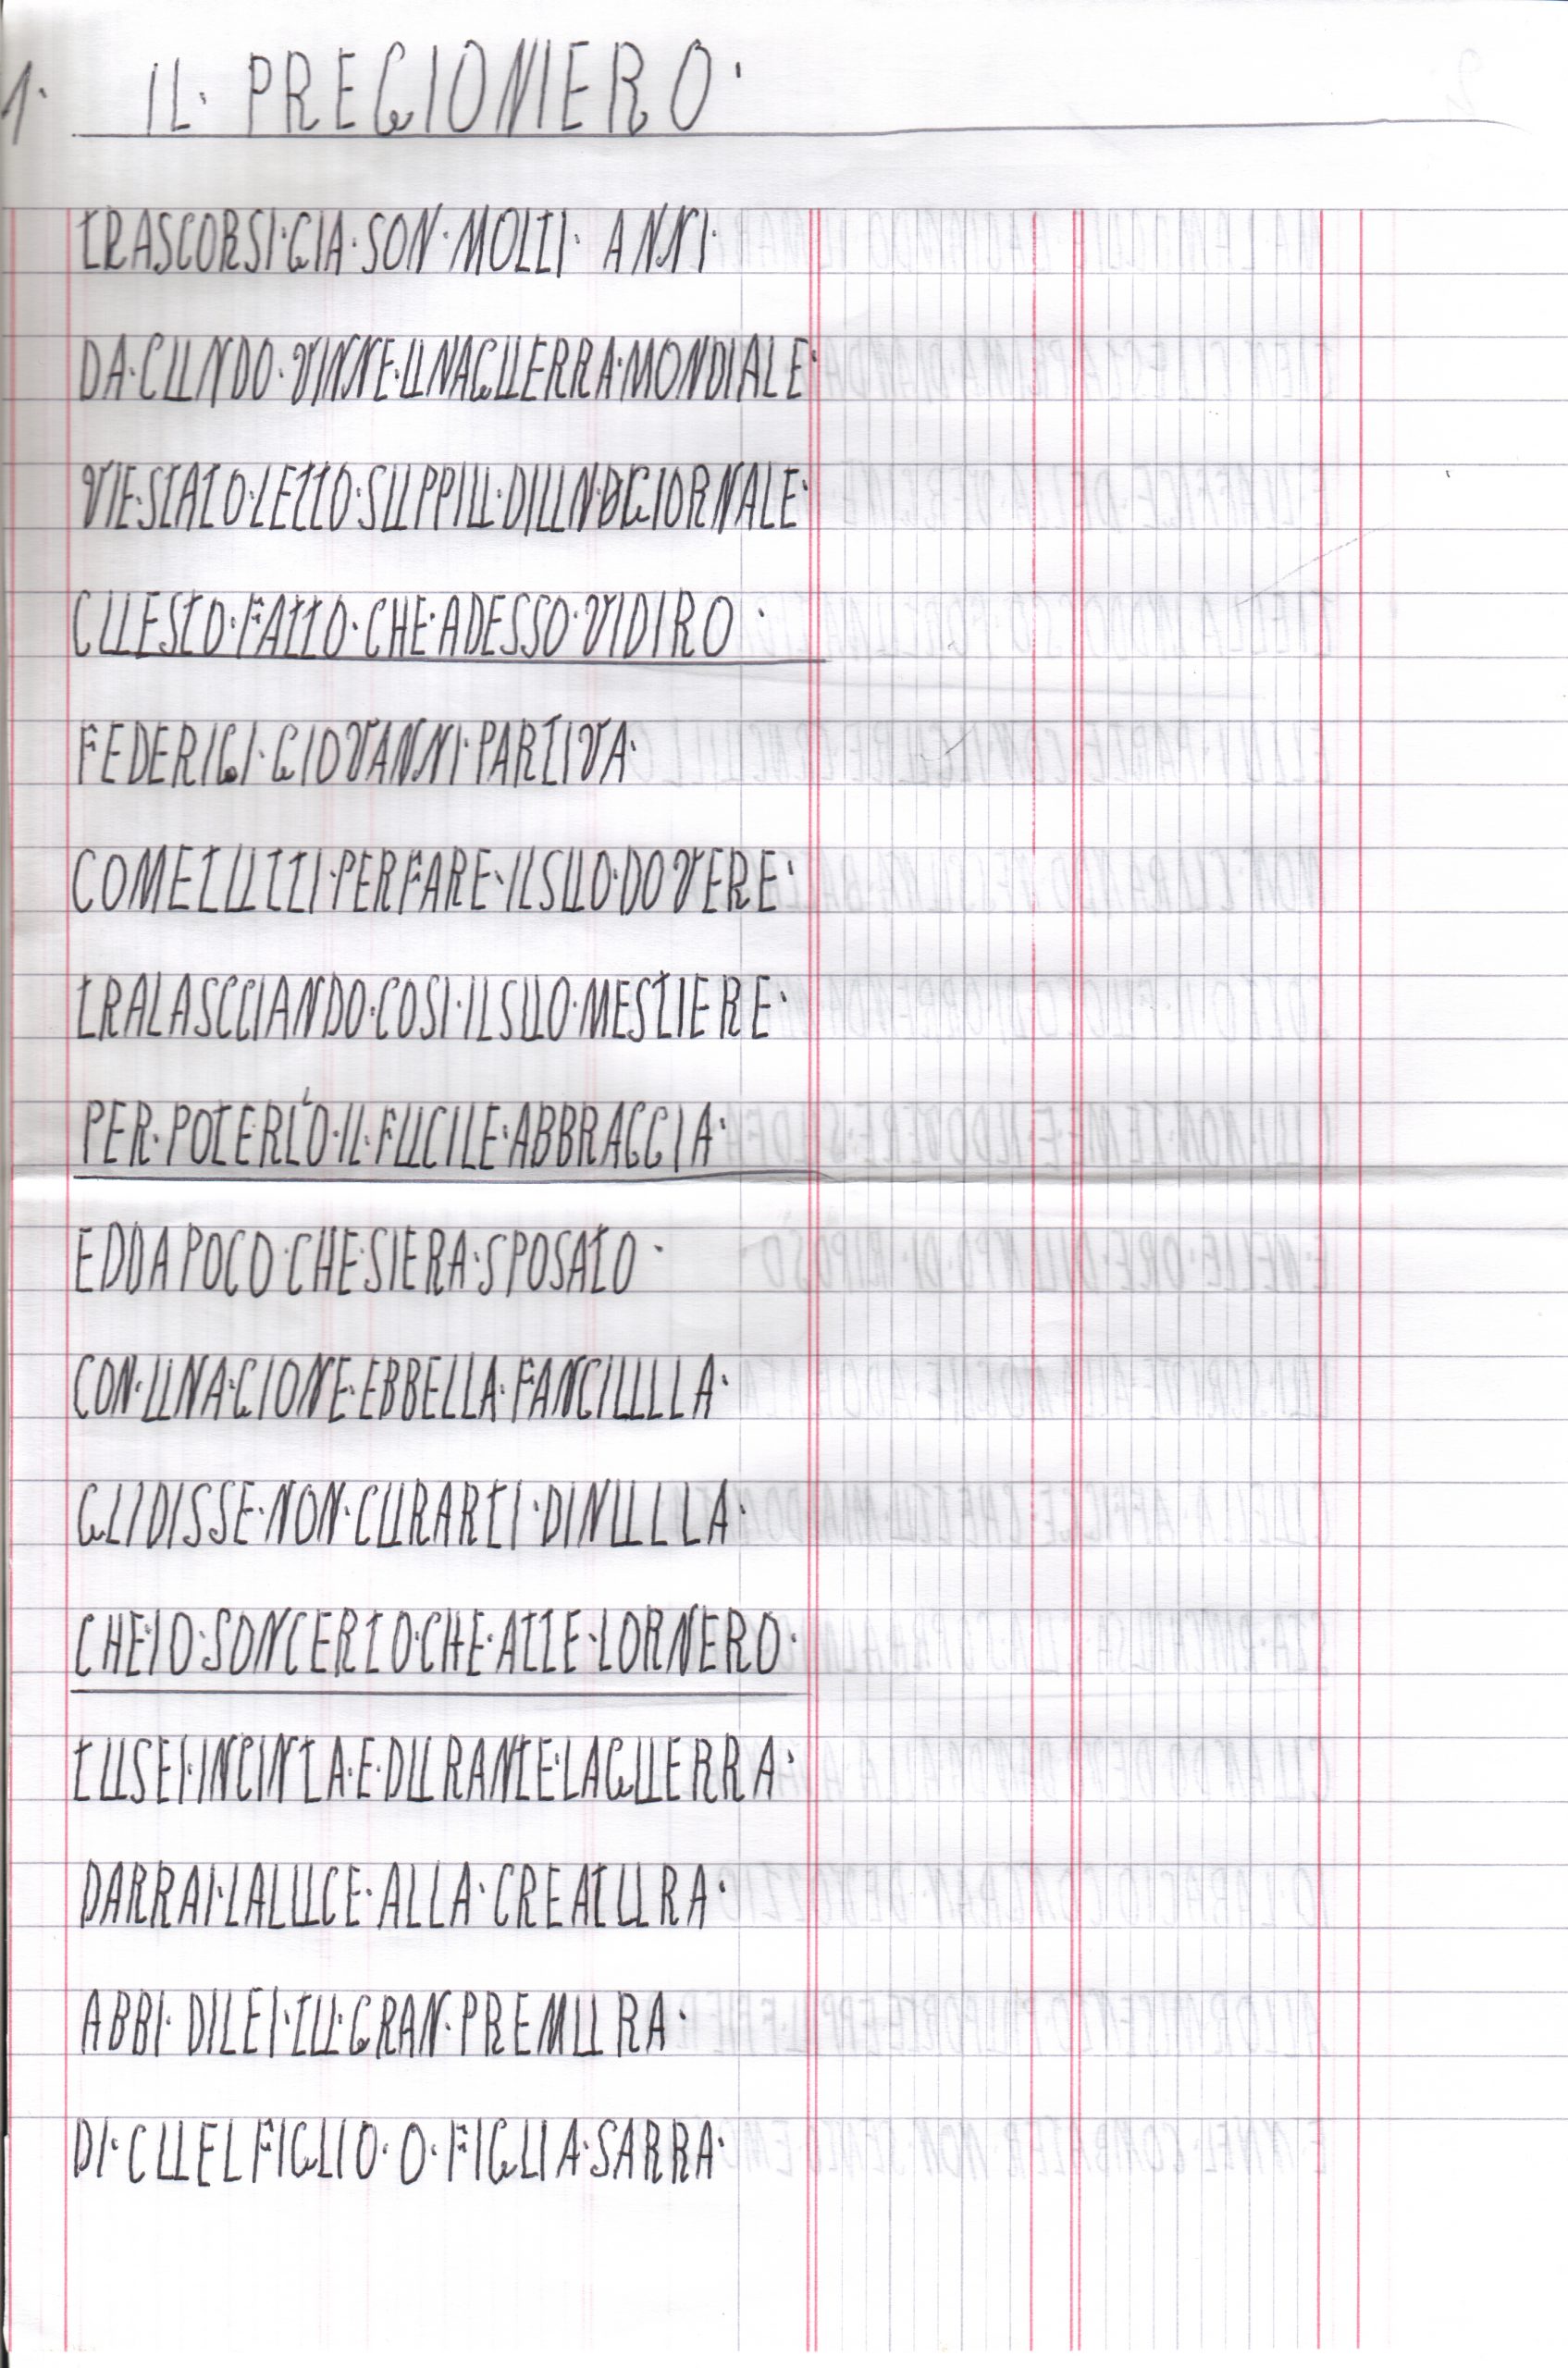 1. IL· PREGIONIERO·
TRASCORSI·GIA·SON·MOLTI· ANNI·
DA·CUNDO·VINNE·UNAGUERRA·MONDIALE·
VIE·STATO·LETTO·SUPPIU·DIUNOGIORNALE·
CUESTO·FATTO·CHE·ADESSO·VIDIRO·
FEDERIGI·GIOVANNI·PARTIVA·
COMETUTTI·PERFARE·ILSUO·DOVERE·
TRALASCCIANDO·COSI·ILSUO·MESTIERE·
PER·POTERLO·IL·FUCILE·ABBRACCIA·
EDDAPOCO·CHE·SIERA·SPOSATO·
CON·UNA·GIONE·EBBELLA·FANCIULLA·
GLIDISSE·NON·CURARTI·DINULLA·
CHE·IO·SONCERTO·CHE·ATTE·TORNERO·
TUSEI·INCINTA·E·DURANTE·LAGUERRA·
DARRAI·LALUCE·ALLA·CREATURA·
ABBI·DILEI·TU·GRAN·PREMURA·
DI·CUELFIGLIO·O·FIGLIA·SARRA·